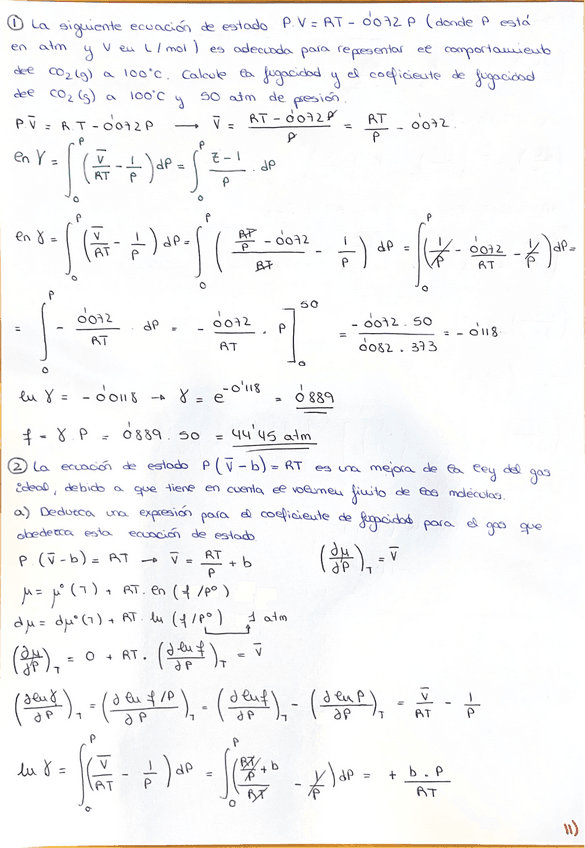 ① La siguiente ecuación de estado P.V = RT - 0'072 P (donde P está
en atm y V en L/mol) es adecuada para representar el comportamiento
del CO₂(g) a 100°C. Calcule la fugacidad y el coeficiente de fugacidad
del CO₂(g) a 100°C y 50 atm de presión.
P.V̄ = R.T - 0'072 P ⟶ V̄ = (RT - 0'072 P)/P = RT/P - 0'072.
ln γ = ∫₀ᴾ (V̄/RT - 1/P) dP = ∫₀ᴾ (Z-1)/P . dP
ln γ = ∫₀ᴾ (V̄/RT - 1/P) dP = ∫₀ᴾ ((RT/P - 0'072)/RT - 1/P) dP = ∫₀ᴾ (1/P - 0'072/RT - 1/P) dP =
= ∫₀ᴾ - 0'072/RT . dP = - 0'072/RT . P]₀⁵⁰ = (- 0'072 . 50)/(0'082 . 373) = - 0'118
ln γ = - 0'0118 → γ = e^-0'118 = 0'889
f = γ . P = 0'889 . 50 = 44'45 atm
② La ecuación de estado P(V̄ - b) = RT es una mejora de la ley del gas
ideal, debido a que tiene en cuenta el volumen finito de las moléculas.
a) Deduzca una expresión para el coeficiente de fugacidad para el gas que
obedezca esta ecuación de estado
P.(V̄ - b) = RT → V̄ = RT/P + b (∂μ/∂P)_T = V̄
μ = μ°(T) + RT. ln (f/P°)
dμ = dμ°(T) + RT. ln (f/P°) 1 atm
(∂μ/∂P)_T = 0 + RT. (∂ln f/∂P)_T = V̄
(∂ln γ/∂P)_T = (∂ ln f/P/∂P)_T = (∂ ln f/∂P)_T - (∂ ln P/∂P)_T = V̄/RT - 1/P
ln γ = ∫₀ᴾ (V̄/RT - 1/P) dP = ∫₀ᴾ ((RT/P + b)/RT - 1/P) dP = + b . P/RT
11)